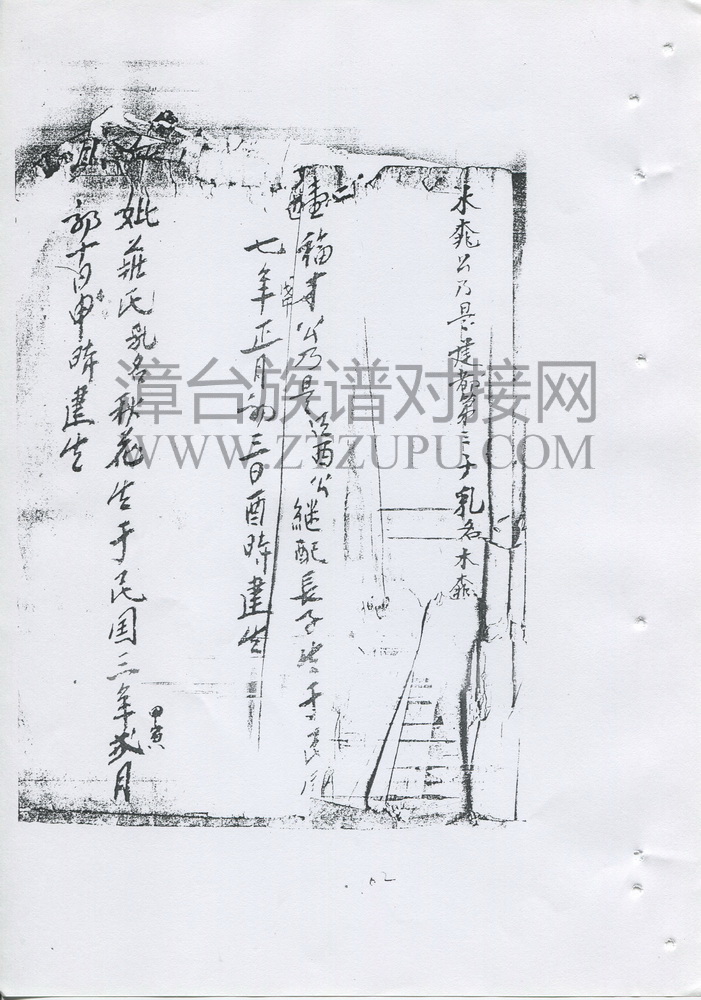 木㷠公乃是建都第三子乳名木㷠
福才公乃是江酉公継配長子生于民国
七年正月初三日酉時建生
妣莊氏乳名秋花生于民国三年甲寅弍月
初十日申時建生
漳台族谱对接网
WWW.ZTZUPU.COM